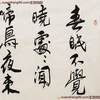 春眠不覺
曉處々聞
啼鳥夜來